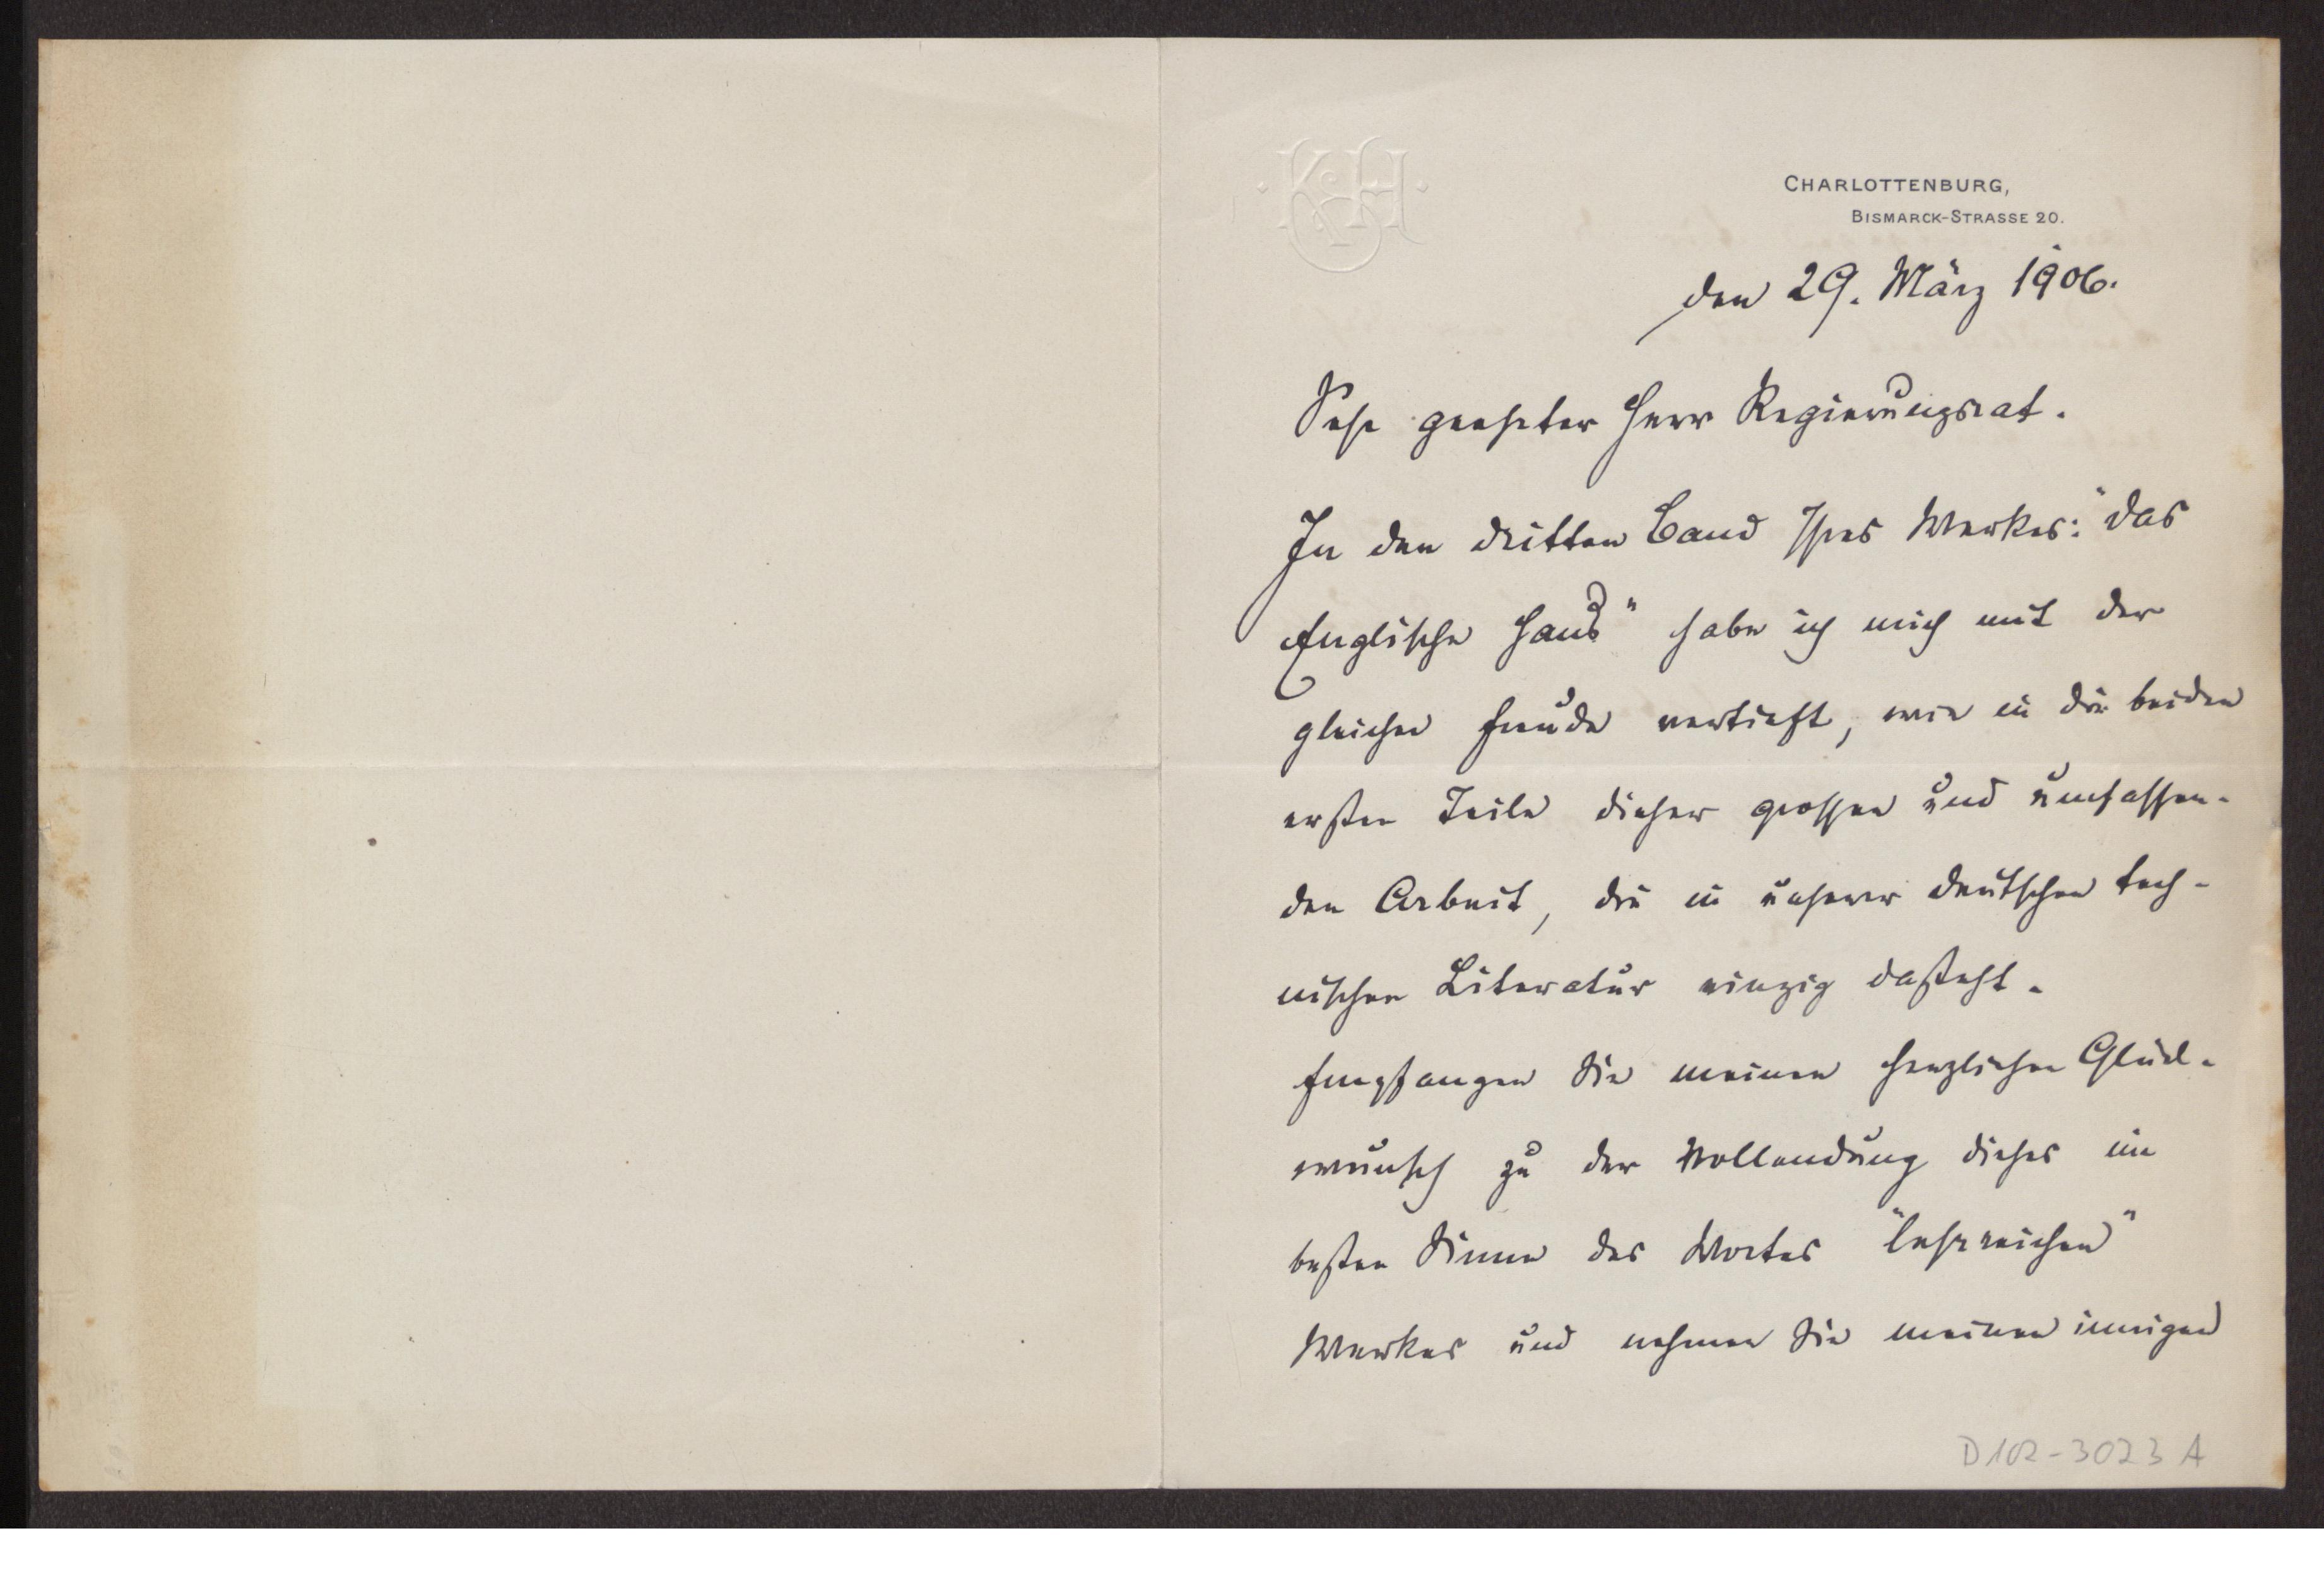 KSH
CHARLOTTENBURG,
BISMARCK-STRASSE 20.
den 29. März 1906.
Sehr geehrter Herr Regierungsrat.
In den dritten Band Ihres Werkes: "das
Englische Haus" habe ich mich mit der
gleichen Freude vertieft, wie in die beiden
ersten Teile dieser grossen und umfassen-
den Arbeit, die in unserer deutschen tech-
nischen Literatur einzig dasteht.
Empfangen Sie meinen herzlichen Glück-
wunsch zu der Vollendung dieses im
besten Sinne des Wortes "lehrreichen"
Werkes und nehmen Sie meinen innigen
D 102-3023 A